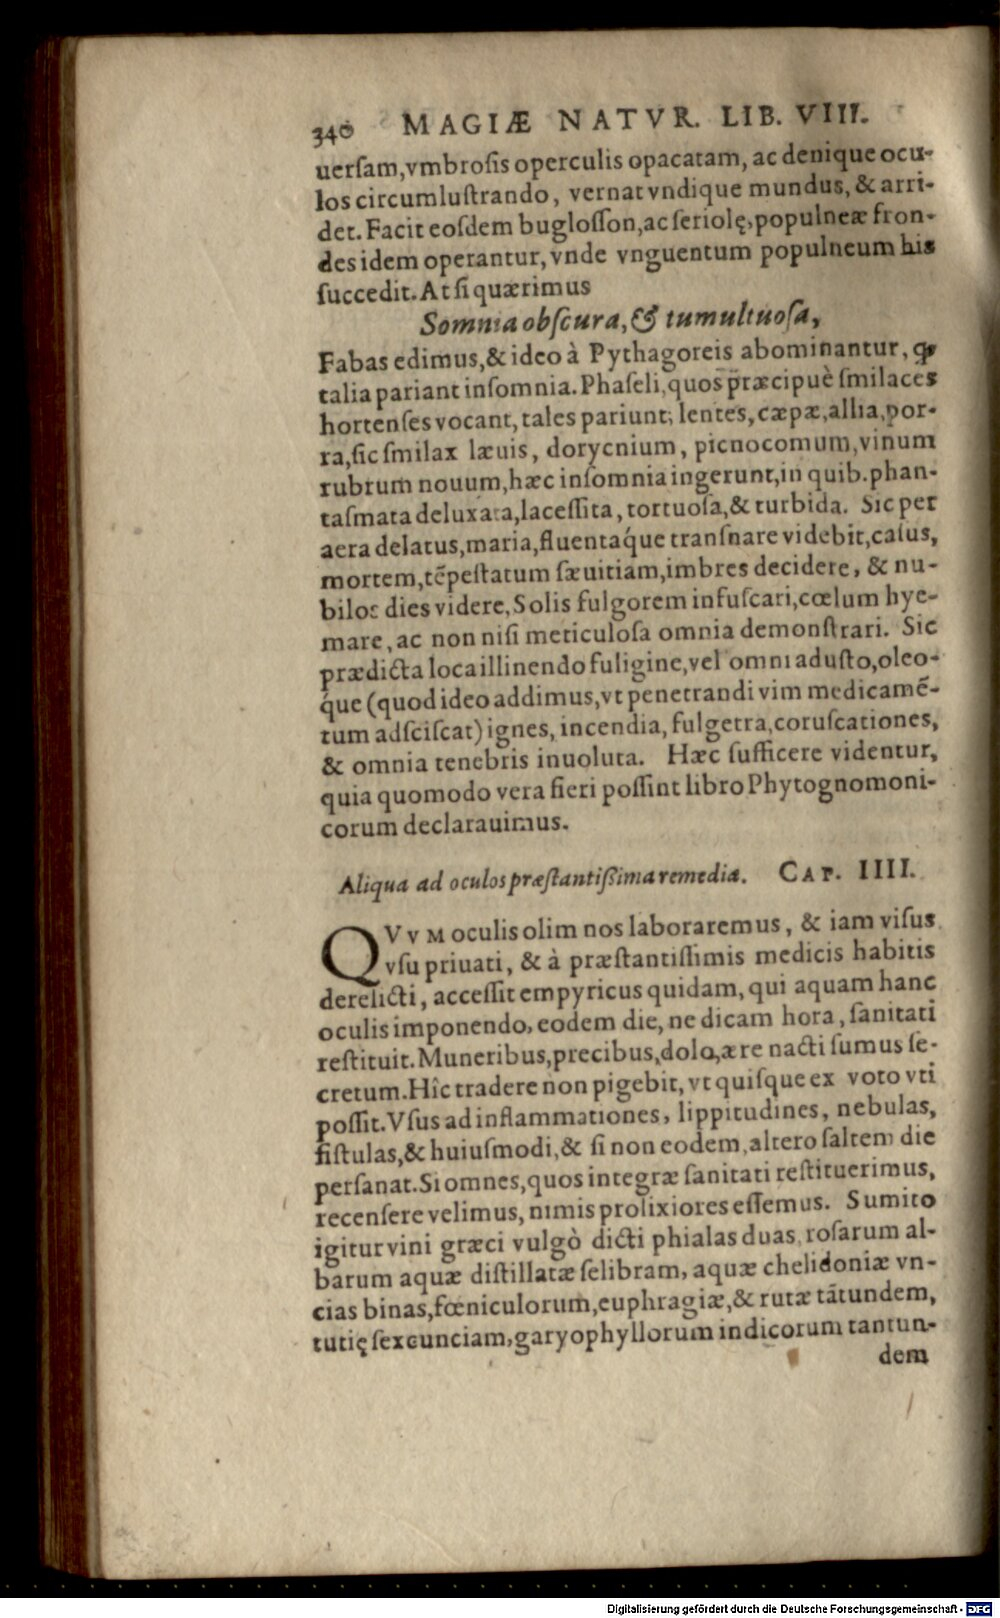 340 MAGIÆ NATVR. LIB. VIII.
uerſam, vmbroſis operculis opacatam, ac denique ocu-
los circumluſtrando, vernat vndique mundus, & arri-
det. Facit eoſdem bugloſſon, ac ſeriolę, populneæ fron-
des idem operantur, vnde vnguentum populneum his
ſuccedit. At ſi quærimus
Somnia obſcura, & tumultuoſa,
Fabas edimus, & ideo à Pythagoreis abominantur, ꝙ
talia pariant inſomnia. Phaſeli, quos præcipuè ſmilaces
hortenſes vocant, tales pariunt; lentes, cæpæ, allia, por-
ra, ſic ſmilax læuis, dorycnium, picnocomum, vinum
rubrum nouum, hæc inſomnia ingerunt, in quib. phan-
taſmata deluxata, laceſſita, tortuoſa, & turbida. Sic per
aera delatus, maria, fluentaq́ue tranſnare videbit, caſus,
mortem, tẽpeſtatum ſæuitiam, imbres decidere, & nu-
bilos dies videre, Solis fulgorem infuſcari, cœlum hye-
mare, ac non niſi meticuloſa omnia demonſtrari. Sic
prædicta loca illinendo fuligine, vel omni aduſto, oleo-
q́ue (quod ideo addimus, vt penetrandi vim medicamẽ-
tum adſciſcat) ignes, incendia, fulgetra, coruſcationes,
& omnia tenebris inuoluta. Hæc ſufficere videntur,
quia quomodo vera fieri poſſint libro Phytognomoni-
corum declarauimus.
Aliqua ad oculos præſtantiſſima remedia. CAP. IIII.
QVVM oculis olim nos laboraremus, & iam viſus
vſu priuati, & à præſtantiſſimis medicis habitis
derelicti, acceſſit empyricus quidam, qui aquam hanc
oculis imponendo, eodem die, ne dicam hora, ſanitati
reſtituit. Muneribus, precibus, dolo, ære nacti ſumus ſe-
cretum. Hîc tradere non pigebit, vt quiſque ex voto vti
poſſit. Vſus ad inflammationes, lippitudines, nebulas,
fiſtulas, & huiuſmodi, & ſi non eodem, altero ſaltem die
perſanat. Si omnes, quos integræ ſanitati reſtituerimus,
recenſere velimus, nimis prolixiores eſſemus. Sumito
igitur vini græci vulgò dicti phialas duas, roſarum al-
barum aquæ diſtillatæ ſelibram, aquæ chelidoniæ vn-
cias binas, fœniculorum, euphragiæ, & rutæ tãtundem,
tutię ſexcunciam, garyophyllorum indicorum tantun-
dem
Digitalisierung gefördert durch die Deutsche Forschungsgemeinschaft - DFG